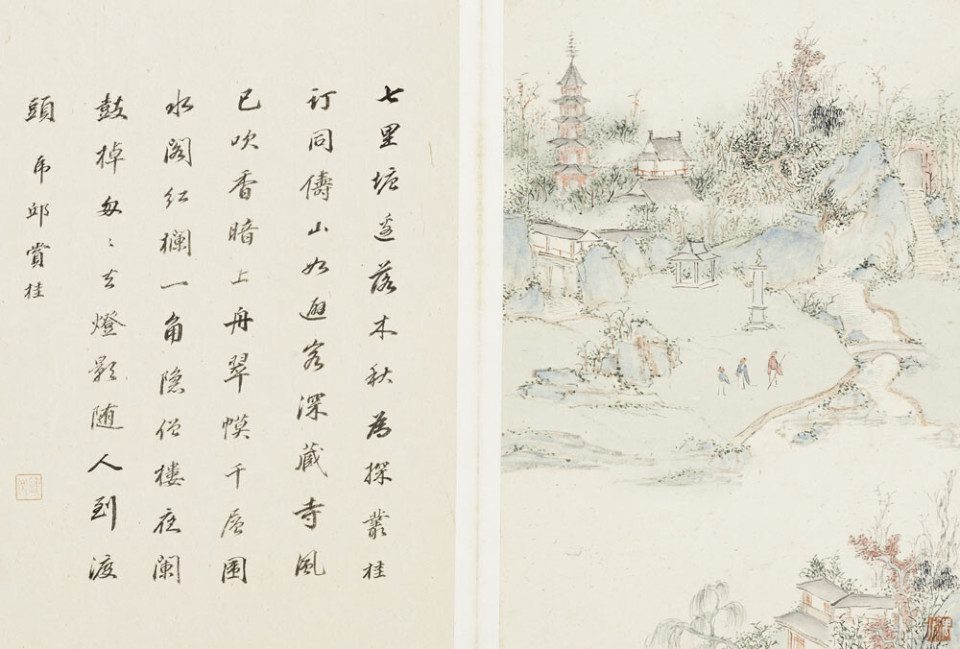 七里塘邊落木秋為探叢桂
訂同儔山如避客深藏寺風
已吹香暗上舟翠幙千層圍
水閣紅欄一角隱僧樓夜闌
鼓棹匆〻去燈影随人到渡
頭 虎邱賞桂